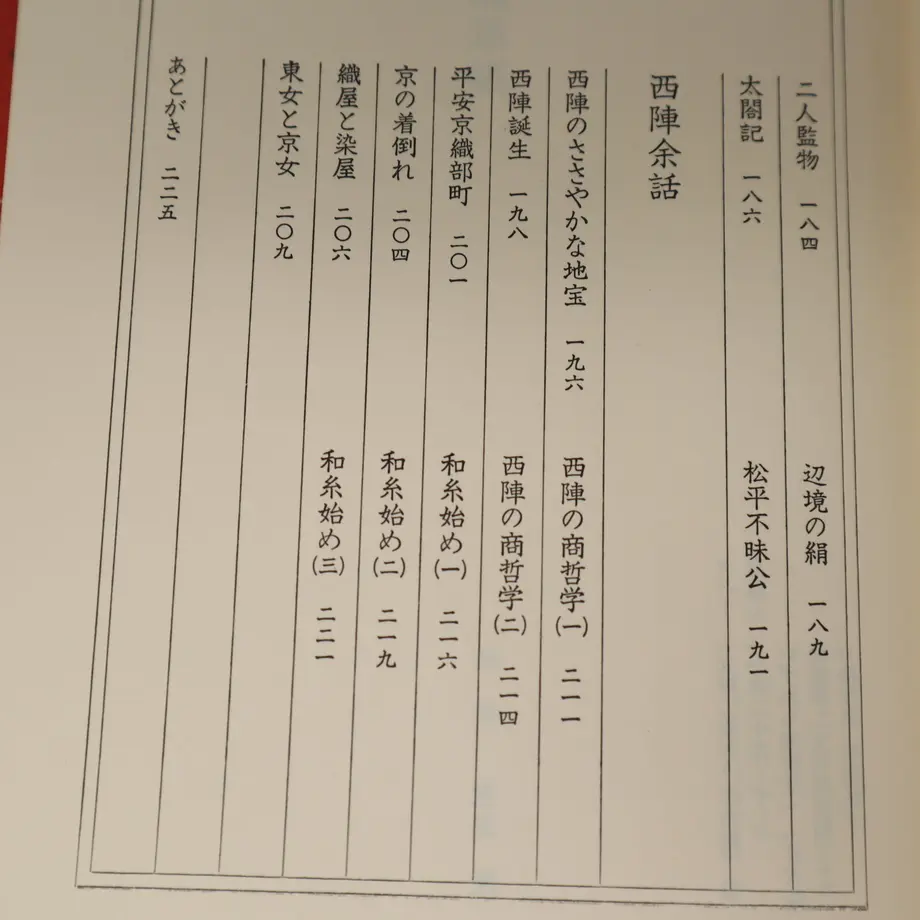 二人監物 一八四
辺境の絹 一八九
太閤記 一八六
松平不昧公 一九一
西陣余話
西陣のささやかな地宝 一九六
西陣の商哲学(一) 二一一
西陣誕生 一九八
西陣の商哲学(二) 二一四
平安京織部町 二〇一
和糸始め(一) 二一六
京の着倒れ 二〇四
和糸始め(二) 二一九
織屋と染屋 二〇六
和糸始め(三) 二二一
東女と京女 二〇九
あとがき 二二五